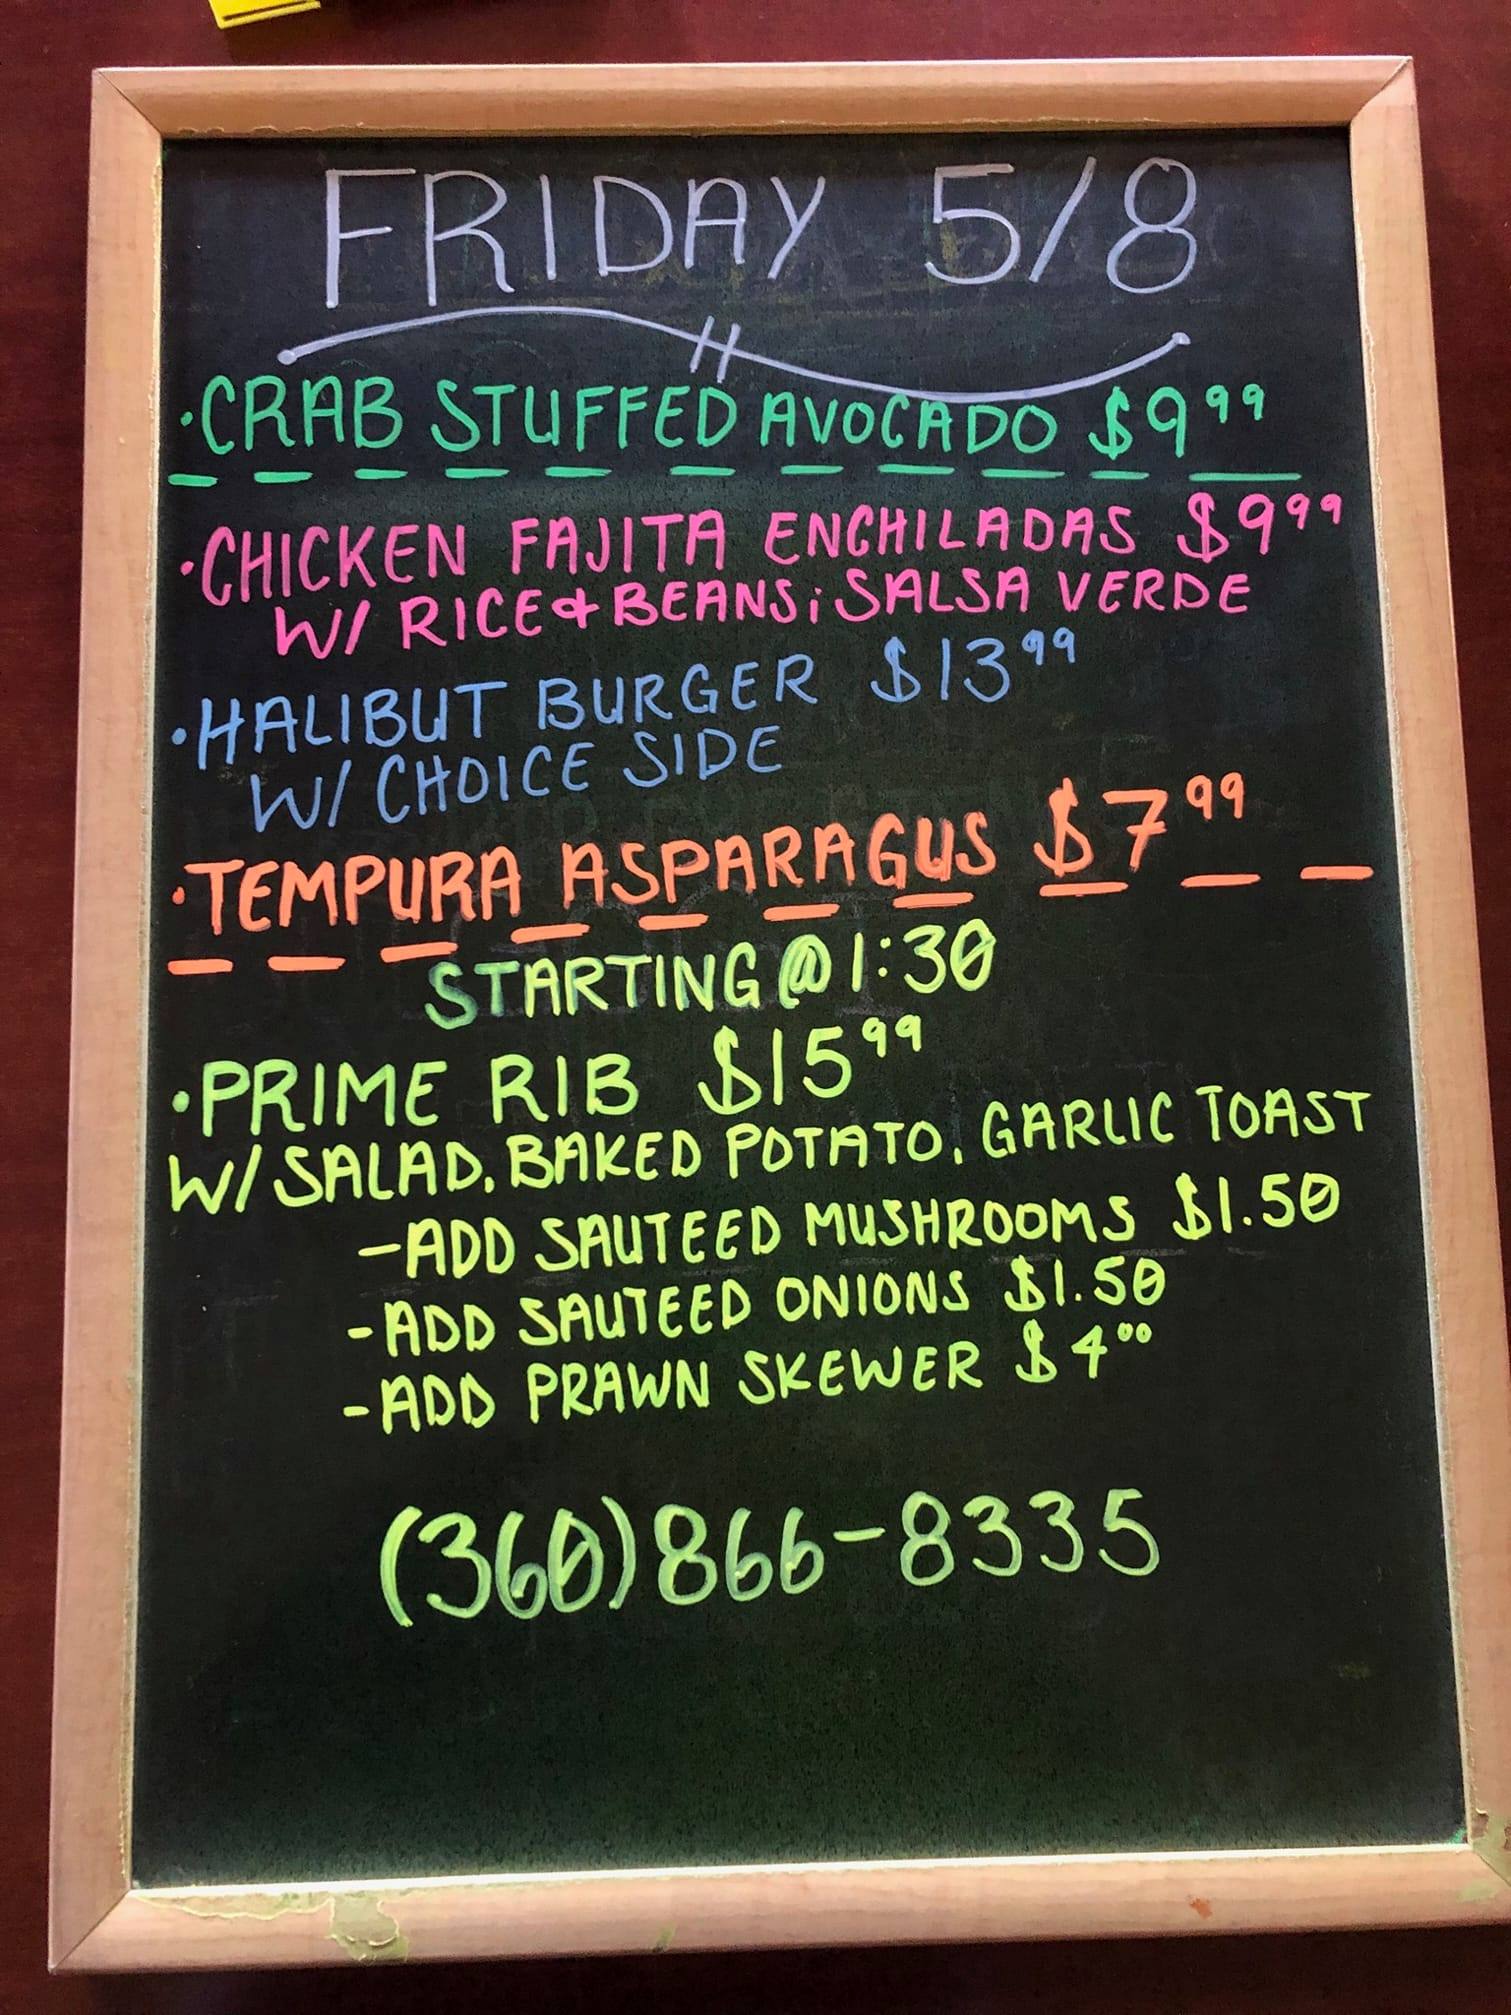 FRIDAY 5/8
·CRAB STUFFED AVOCADO $9⁹⁹
·CHICKEN FAJITA ENCHILADAS $9⁹⁹
W/ RICE & BEANS; SALSA VERDE
·HALIBUT BURGER $13⁹⁹
W/ CHOICE SIDE
·TEMPURA ASPARAGUS $7⁹⁹
STARTING @ 1:30
·PRIME RIB $15⁹⁹
W/ SALAD, BAKED POTATO, GARLIC TOAST
-ADD SAUTEED MUSHROOMS $1.50
-ADD SAUTEED ONIONS $1.50
-ADD PRAWN SKEWER $4⁰⁰
(360)866-8335